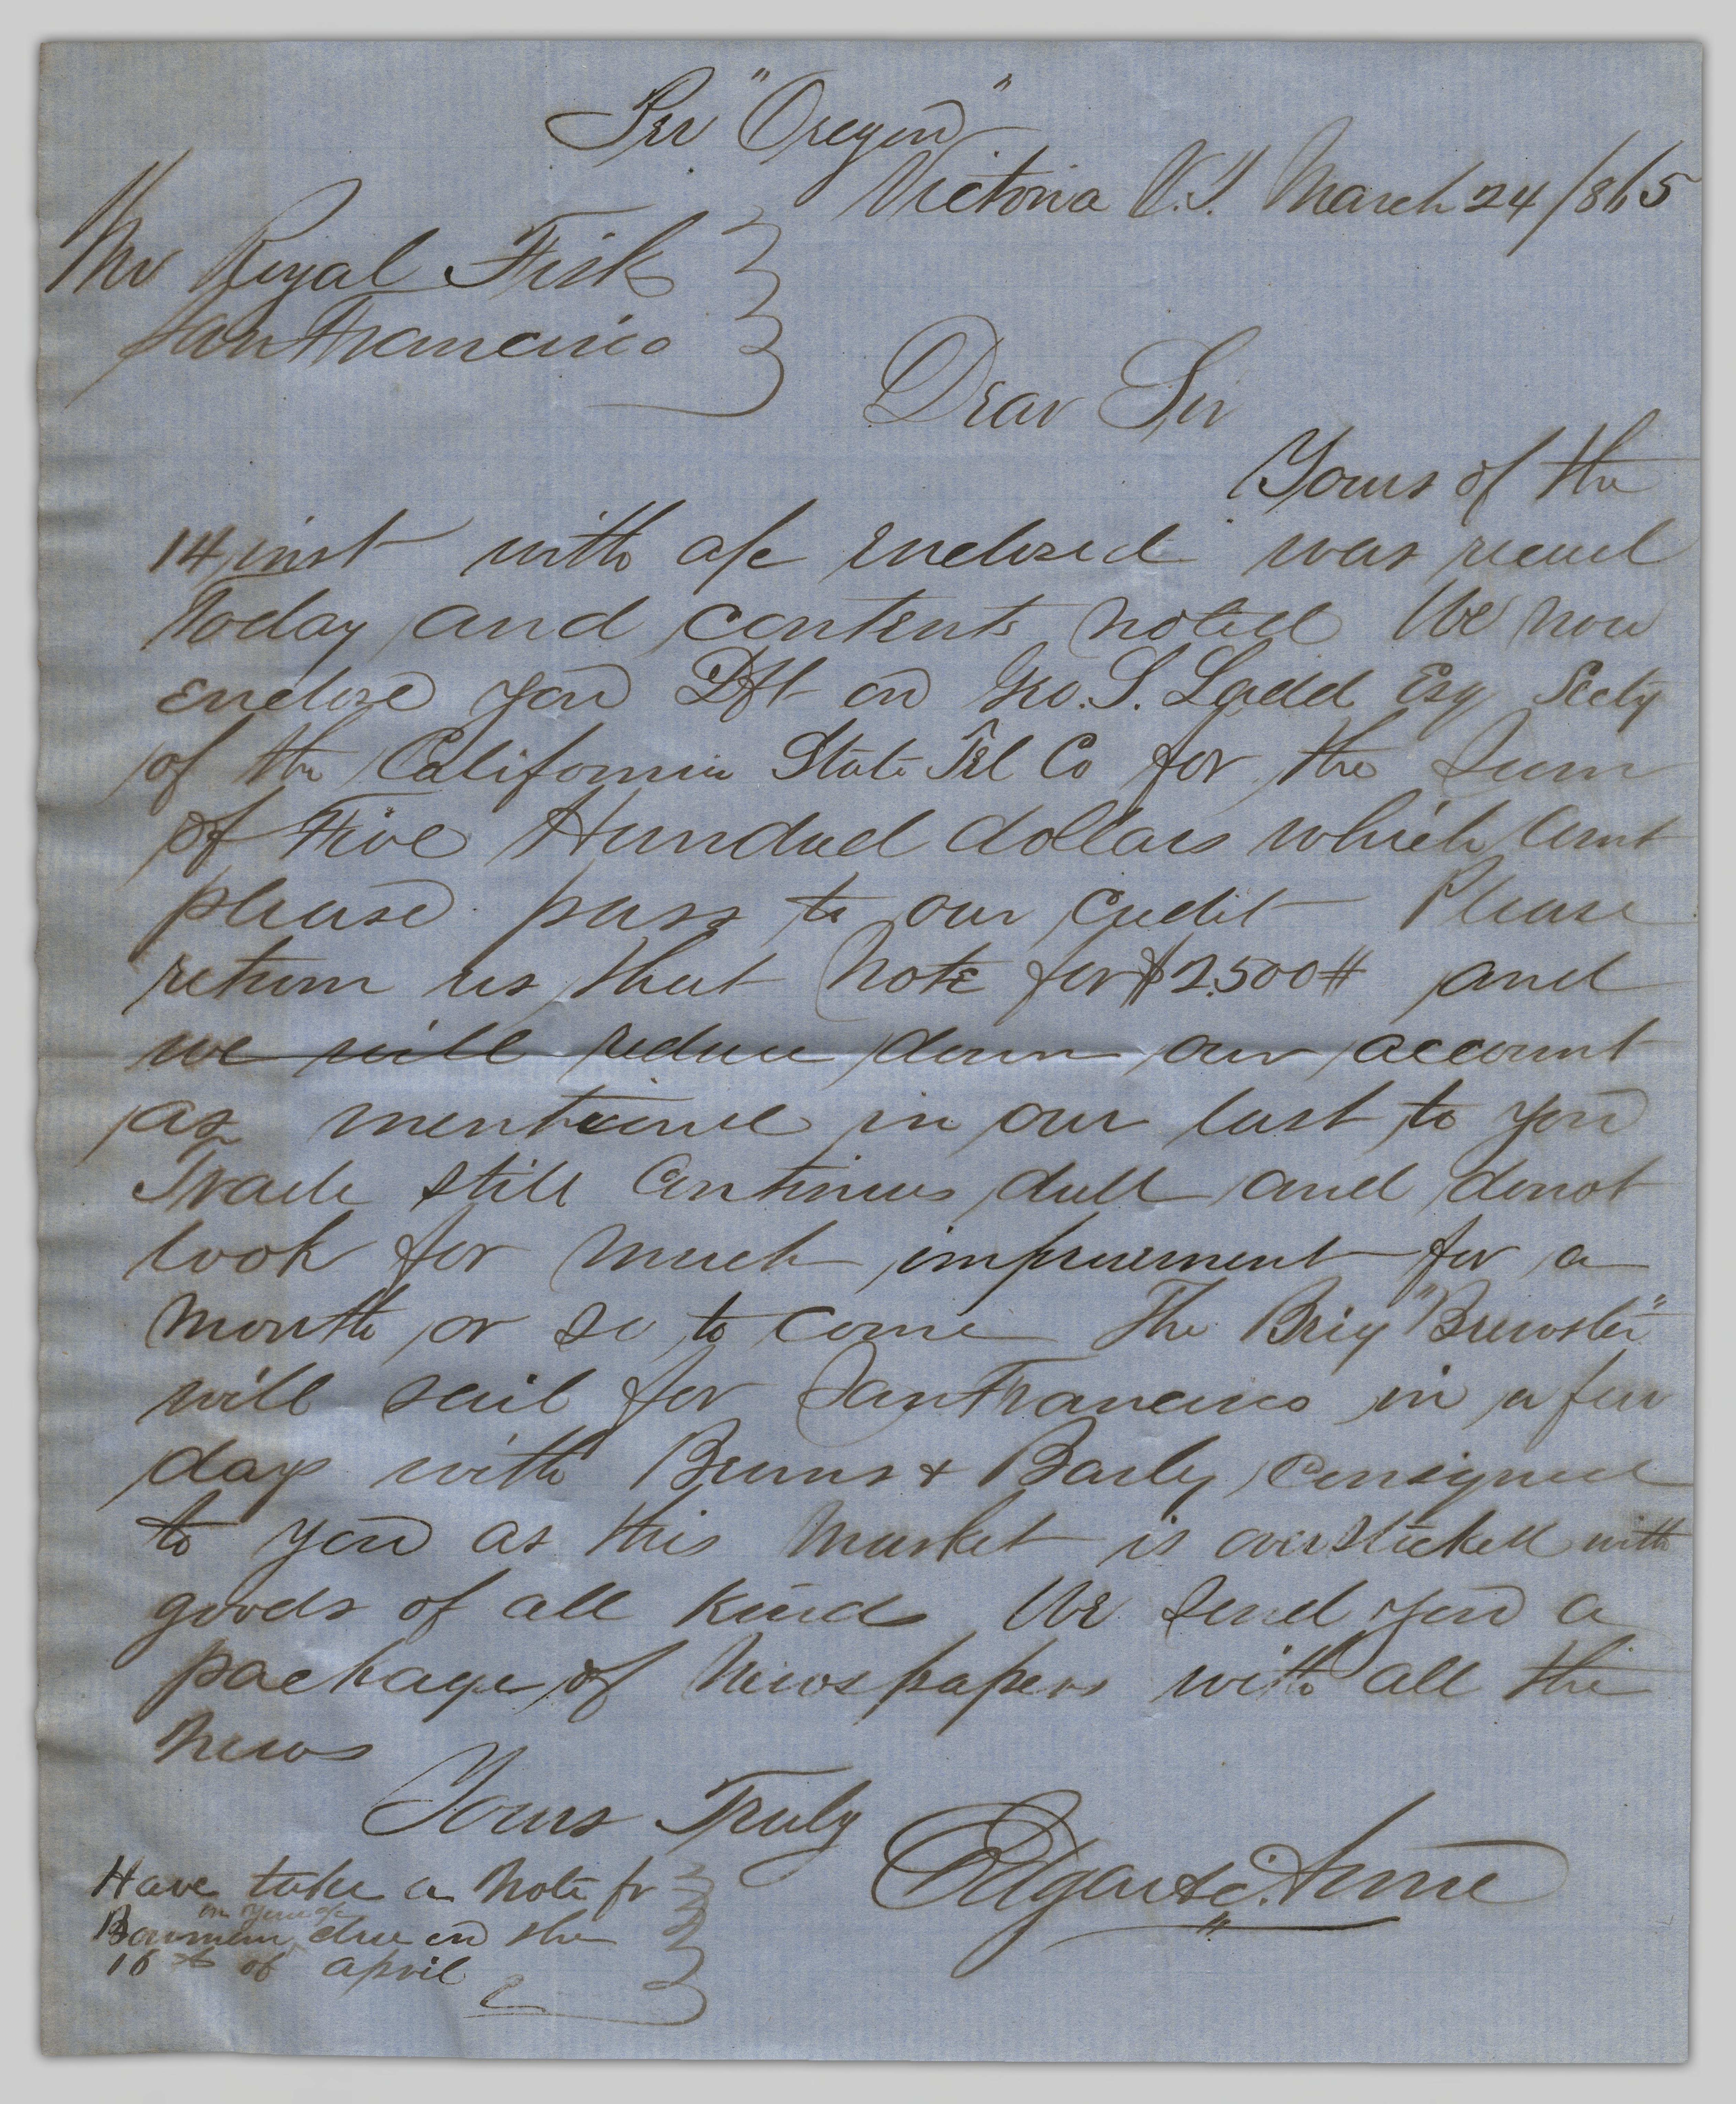 Per "Oregon"
Victoria V.I. March 24/865
Mr Royal Fisk
San Francisco
Dear Sir
Yours of the
14 inst with a/c enclosed was recud
Today and contents noted We now
enclose you Dft on Geo. S. Ladd Esq Secty
of the California State Tel Co for the Sum
of Five Hundred dollars which amt
please pass to our credit Please
return us that Note for $2.500# and
we will reduce down our account
as mentione in our last to you
Trade still continues dull and donot
look for much improvement for a
month or so to come The Brig "Brewster"
will sail for San Francisco in a few
days with Beans & Barly consigned
to you as this market is overstocked with
goods of all kinds We send you a
package of Newspapers with all the
News
Yours Truly
Edgar &
Have take a Note fr
in your a/c
Bowman due on the
16th of april